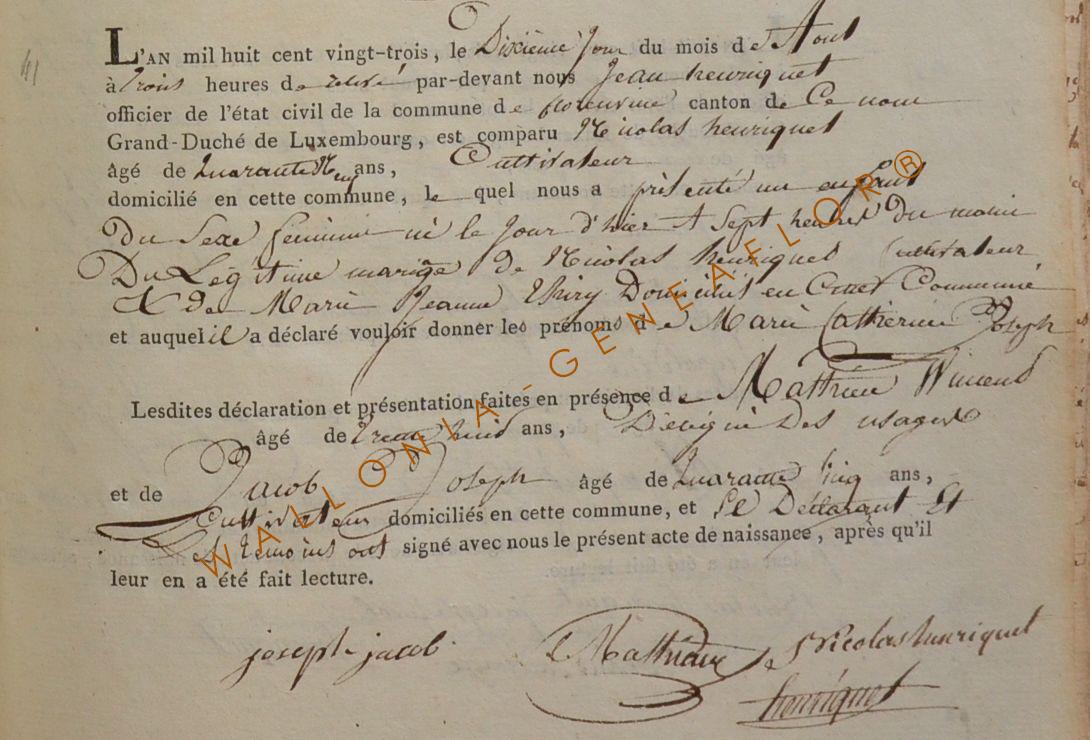 41
L'AN mil huit cent vingt-trois, le Dixième Jour du mois d'e Aout
à trois heures de relevé par-devant nous Jean henriquet
officier de l'état civil de la commune de florenville canton de Ce nom
Grand-Duché de Luxembourg, est comparu Nicolas henriquet
âgé de Quarante Neuf ans, Cultivateur
domicilié en cette commune, le quel nous a présenté un enfant
Du Sexe féminin né le Jour d'hier A Sept heures Du matin
Du Légitime mariage de Nicolas henriquet Cultivateur
& de Marie Jeanne Thiry Domiciliés en Cette Commune
et auquel il a déclaré vouloir donner les prénoms de Marie Catherine Joseph
Lesdites déclaration et présentation faites en présence de Mathieu
âgé de trente huit ans, Désigné Des usages
et de Jacob Joseph âgé de Quarante Cinq ans,
Cultivateur domiciliés en cette commune, et Le Déclarant Et
Les Témoins ont signé avec nous le présent acte de naissance, après qu'il
leur en a été fait lecture.
joseph jacob Nicolas henriquet
henriquet
WALLONIA-GENEAFLOR®